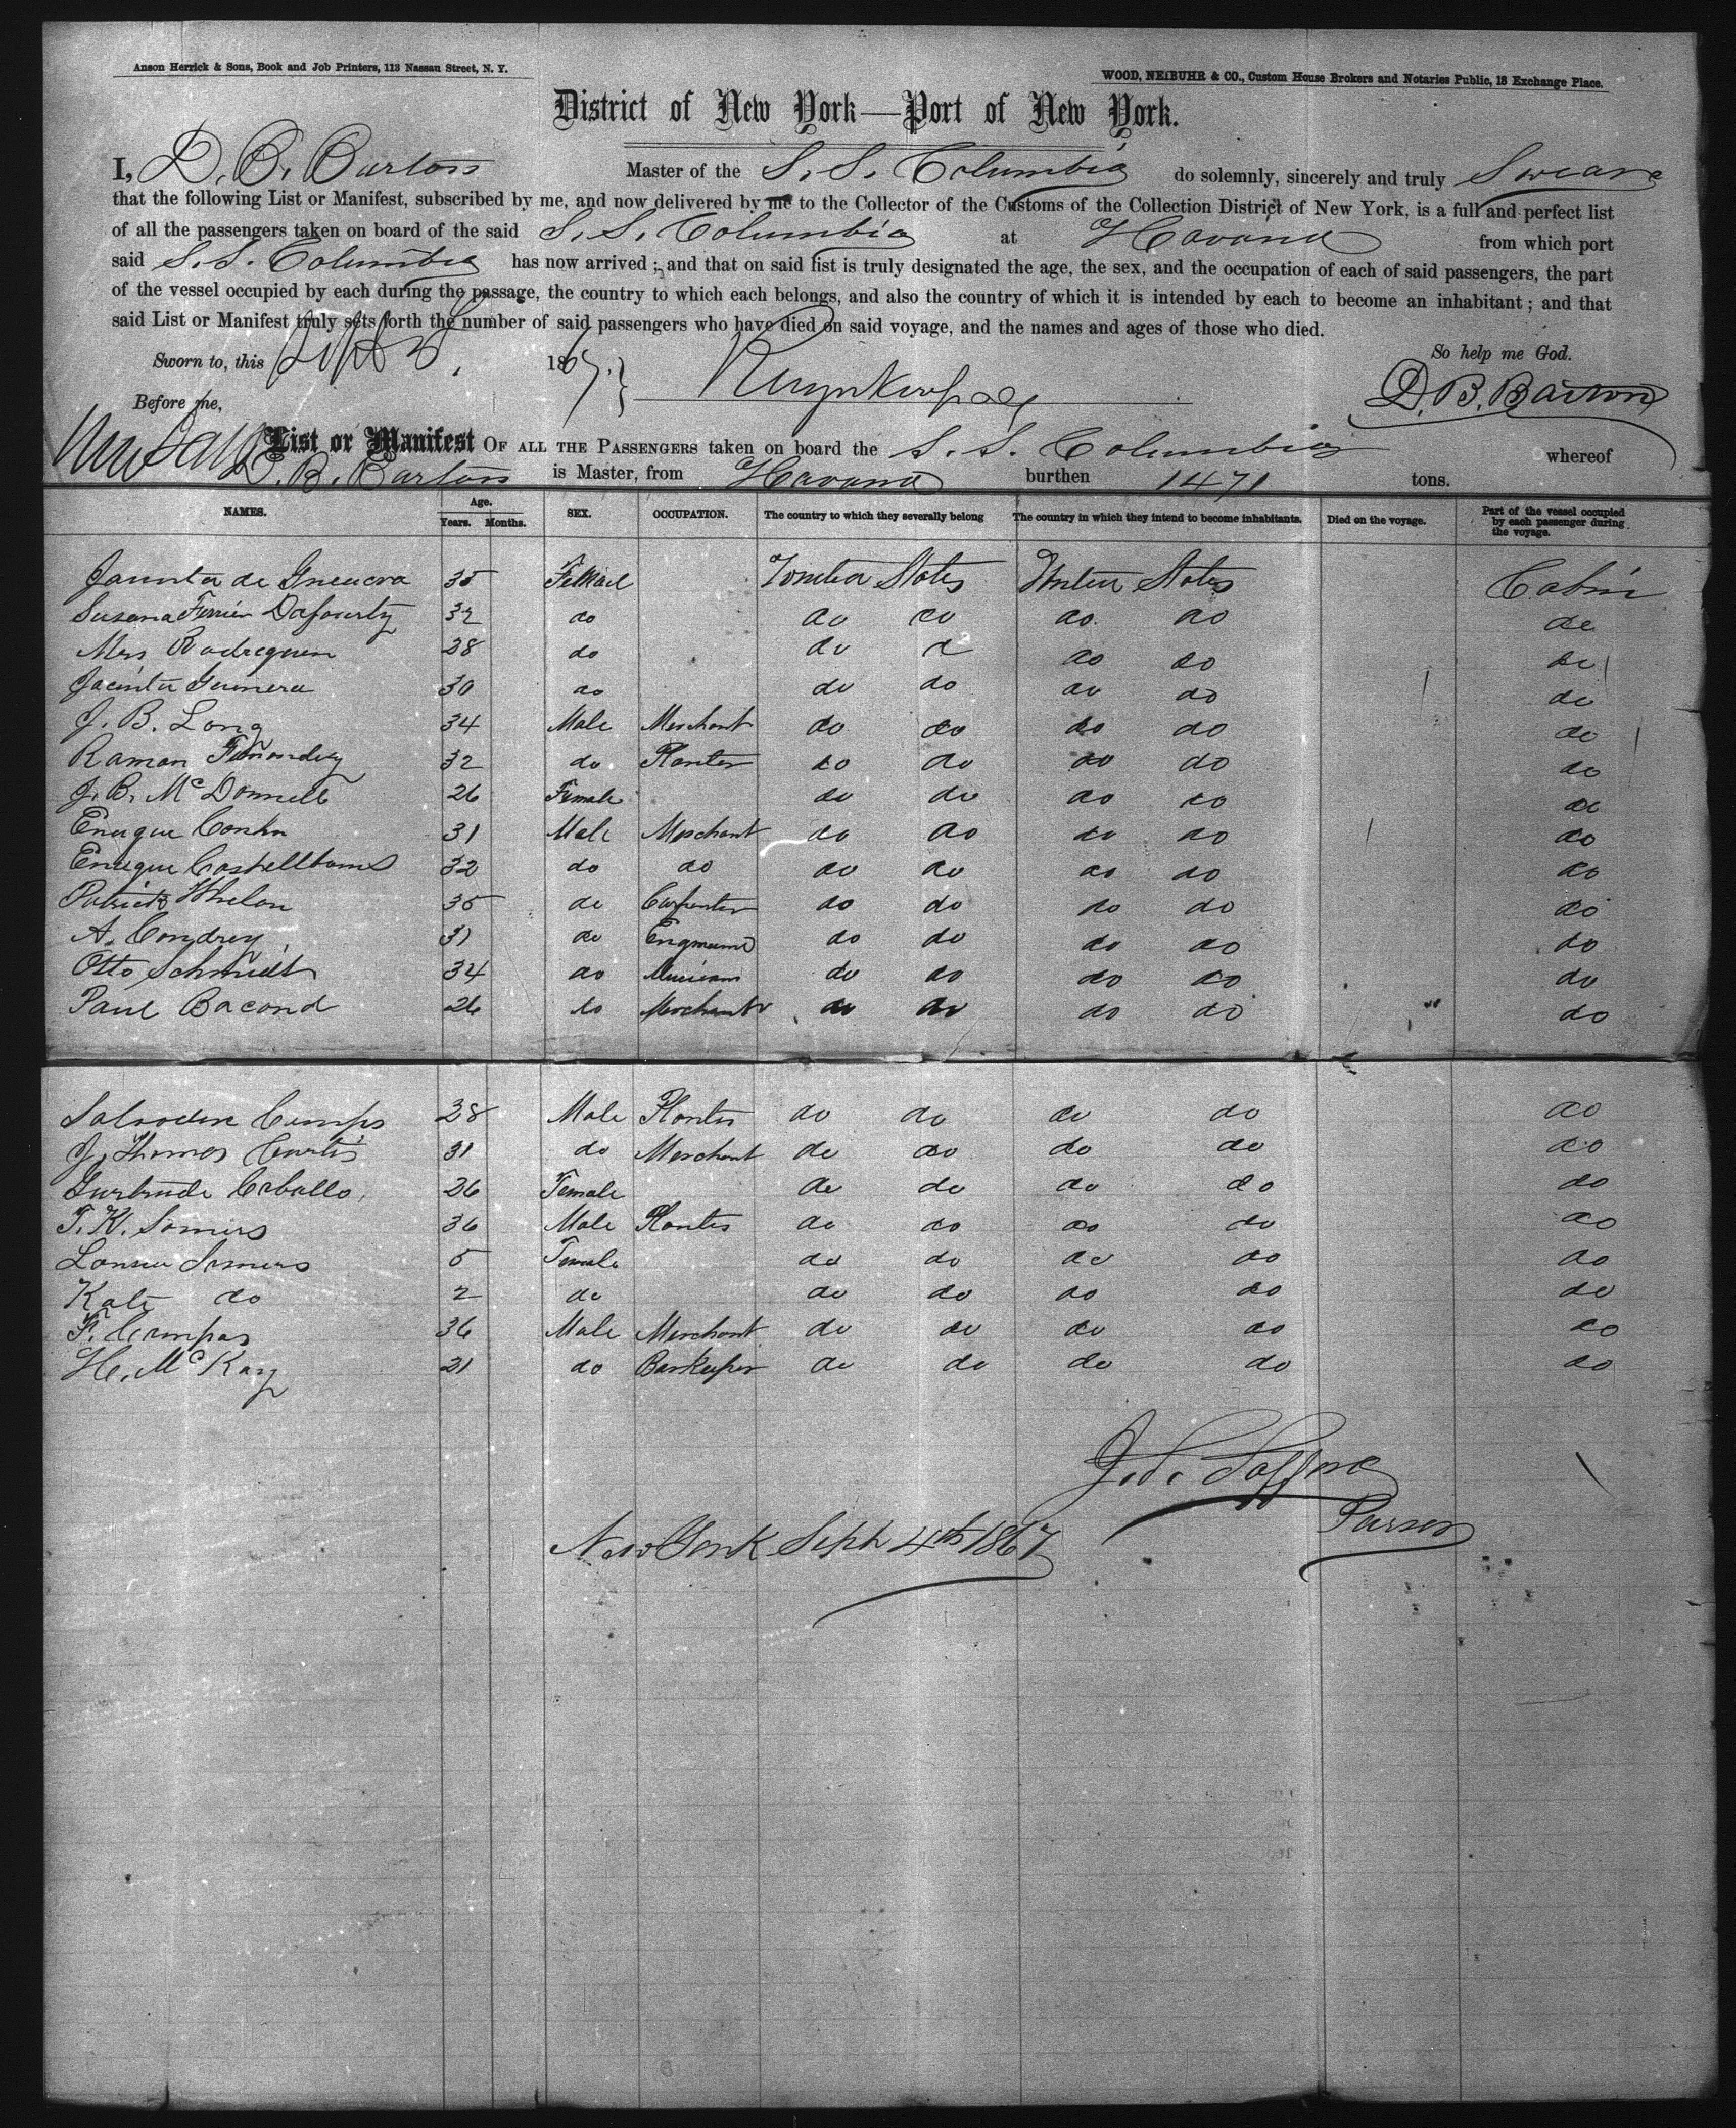 Anson Herrick & Sons, Book and Job Printers, 113 Nassau Street, N. Y.
WOOD, NEIBUHR & CO., Custom House Brokers and Notaries Public, 18 Exchange Place.
District of New York—Port of New York.
I, D. B. Barton Master of the S. S. Columbia do solemnly, sincerely and truly Swear
that the following List or Manifest, subscribed by me, and now delivered by me to the Collector of the Customs of the Collection District of New York, is a full and perfect list
of all the passengers taken on board of the said S. S. Columbia at Havana from which port
said S. S. Columbia has now arrived; and that on said list is truly designated the age, the sex, and the occupation of each of said passengers, the part
of the vessel occupied by each during the passage, the country to which each belongs, and also the country of which it is intended by each to become an inhabitant; and that
said List or Manifest truly sets forth the number of said passengers who have died on said voyage, and the names and ages of those who died.
Sworn to, this 1867. So help me God.
Before me, D. B. Barton
List or Manifest OF ALL THE PASSENGERS taken on board the S. S. Columbia whereof
D. B. Barton is Master, from Havana burthen 1471 tons.
NAMES. Age. Years. Months. SEX. OCCUPATION. The country to which they severally belong The country in which they intend to become inhabitants. Died on the voyage. Part of the vessel occupied by each passenger during the voyage.
de 35 Female United States United States Cabin
Susana 32 do do do do do do
Mrs 28 do do do do do do
Jacinta 30 do do do do do do
J. B. Long 34 Male Merchant do do do do do
Ramon 32 do Planter do do do do do
J. B. McDonnell 26 Female do do do do do
31 Male Merchant do do do do do
32 do do do do do do do
Patrick Whelan 35 do Carpenter do do do do do
A. 31 do do do do do do
Otto Schmidt 34 do Musician do do do do do
Paul Bacond 26 do Merchant do do do do do
28 Male Planter do do do do do
J. Thomas Curtis 31 do Merchant do do do do do
Gertrude Caballo 26 Female do do do do do
T. K. Somers 36 Male Planter do do do do do
Somers 5 Female do do do do do
Kate do 2 do do do do do do
F. Campas 36 Male Merchant do do do do do
H. McKay 21 do Barkeeper do do do do do
Purser
New York Sept 4th 1867